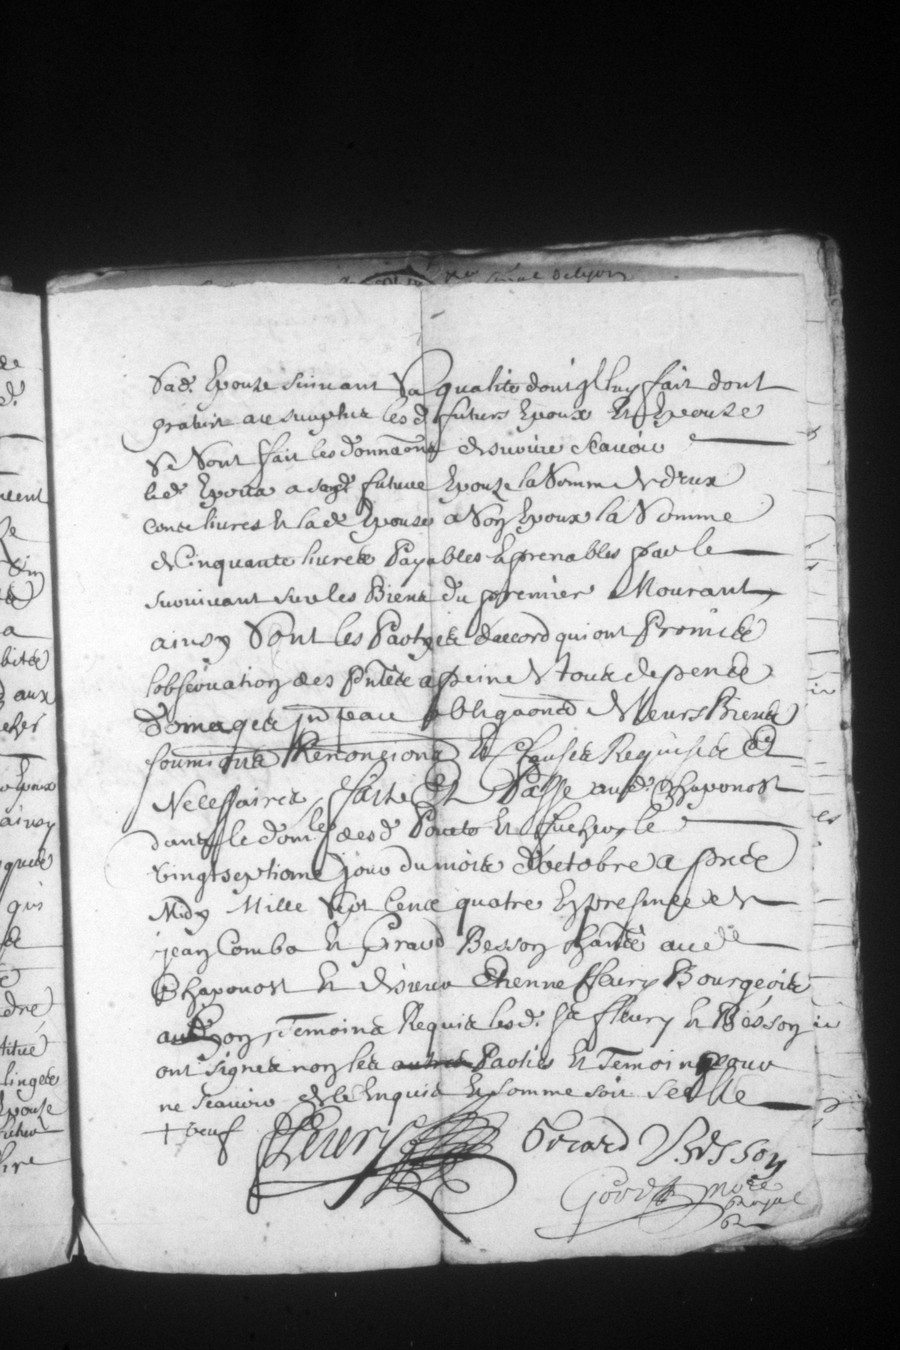 Sad. Epouze suivant Sa qualité dont Il luy fait dont
gratuit au surplus lesd futurs Epoux Et Epouze
Se Sont fait les donnaons de survive scavoir
led. Epoux a sad. future Epouze la Somme de deux
Cents livres Et lad. Epouze a Son Epoux la Somme
de Cinquante livres Payables Et prenables par le
survivant sur les Biens du premier Mourant
ainsy Sont les Partyes d'accord qui ont Promis
l'observation des pntes a peine de tous despens
domages Obligaons de leurs Biens
soumiqons Renonciong Et Clauses Requises Et
Necessaires fait Et Passe aud. Chaponost
dans le domle desd. Et le
vingt septieme jour du mois d'octobre a pres
Midy Mille Sept Cents quatre En presence de
jean Combe Et Girard Besson habts aud
Chaponost Et de sieur Etienne fleury Bourgeois
Temoins Requis lesd. Sr fleury Et Besson
ont signes non les autres Parties Et Temoins pour
ne scavoir de le Enquis Et somme soit scelle
+ oeuf Fleury Girard Besson
Royal